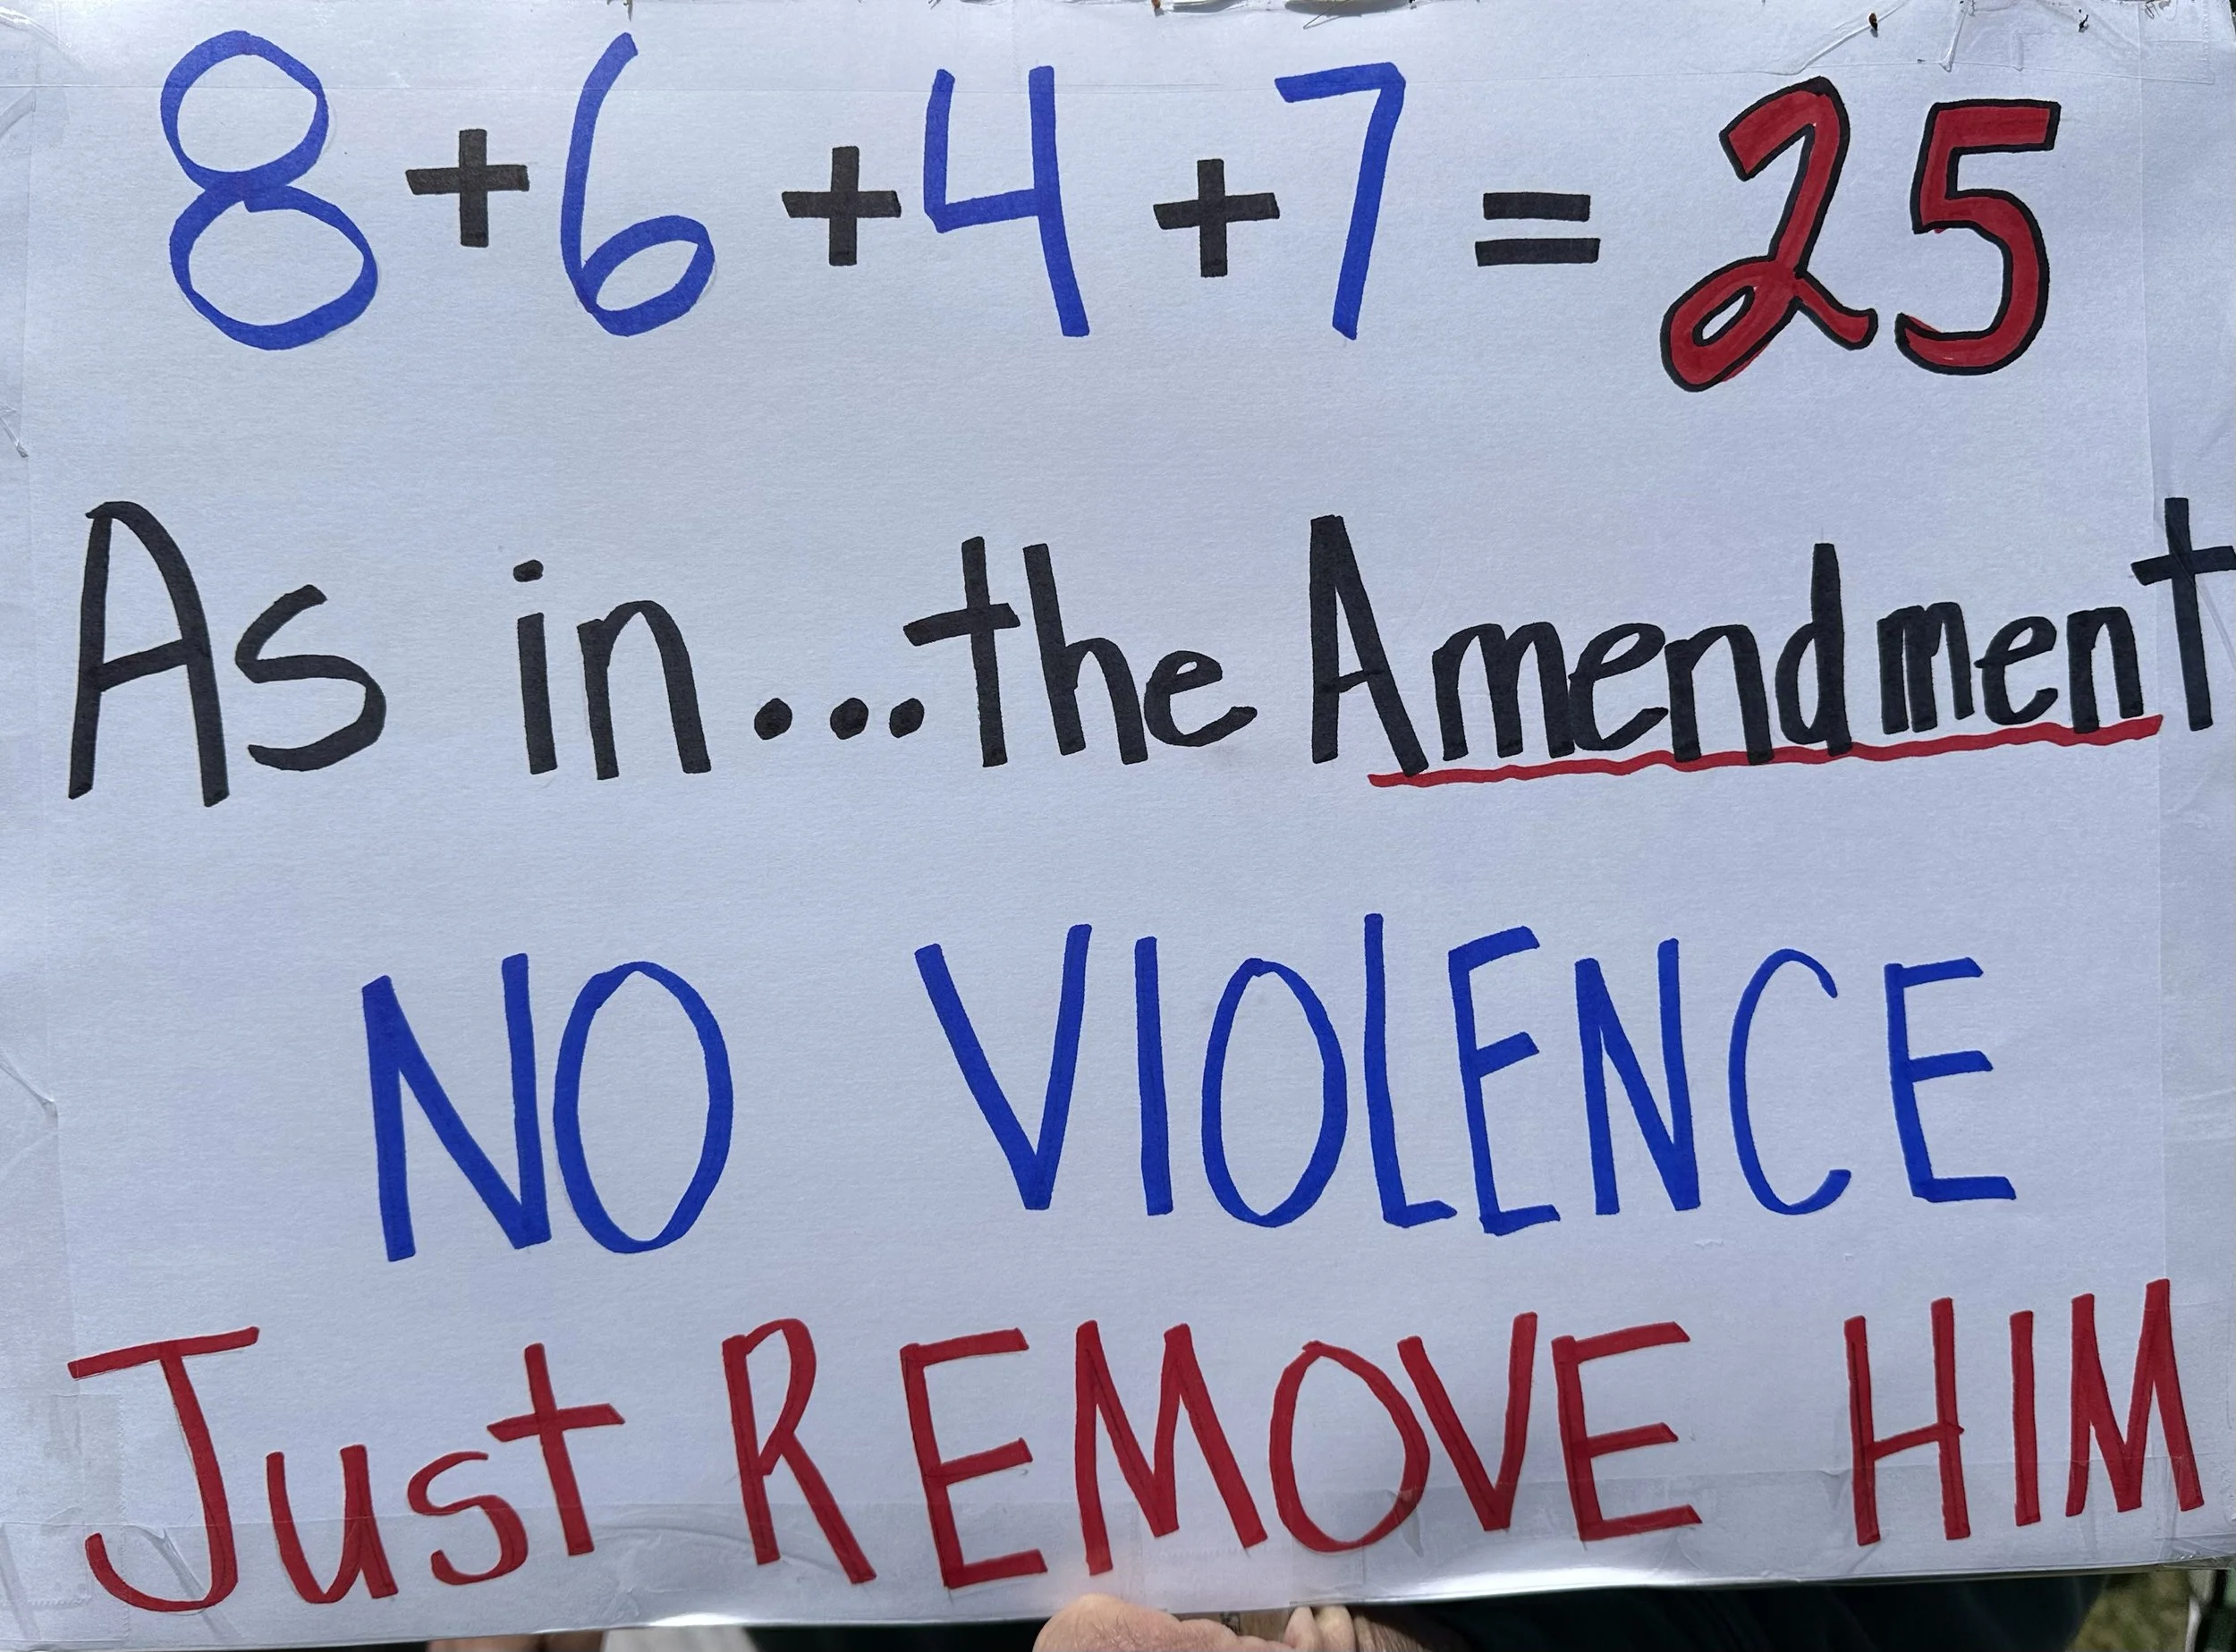 8 + 6 + 4 + 7 = 25
As in...the Amendment
NO VIOLENCE
Just REMOVE HIM